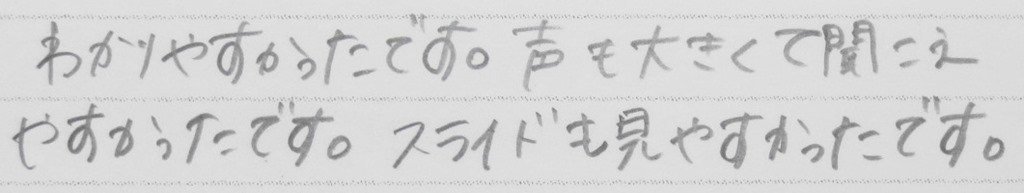 わかりやすかったです。声も大きくて聞こえ
やすかったです。スライドも見やすかったです。